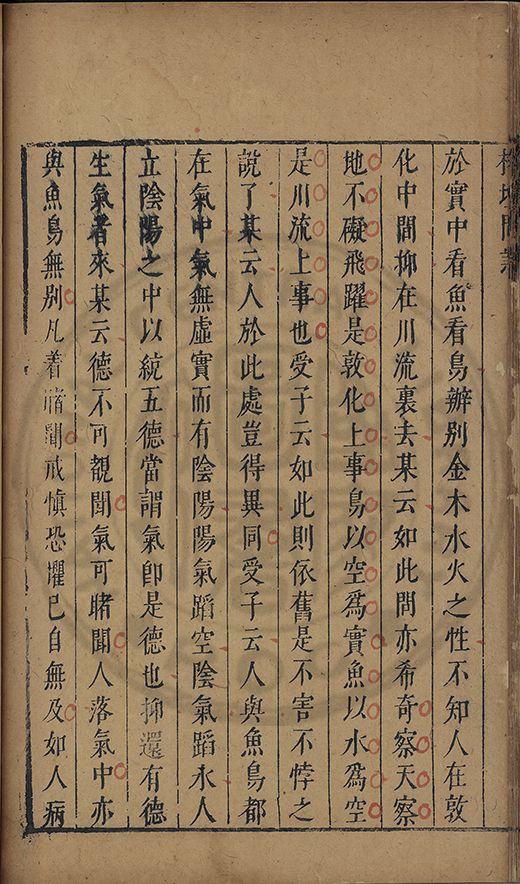 榕壇問業
於實中看魚看鳥辦別金木水火之性不知人在敦
化中間抑在川流裏去某云如此問亦希奇察天察
地不礙飛躍是敦化上事鳥以空爲實魚以水爲空
是川流上事也受子云如此則依舊是不害不悖之
說了某云人於此處豈得異同受子云人與魚鳥都
在氣中氣無虛實而有陰陽陽氣蹈空陰氣蹈水人
立陰陽之中以統五德當謂氣卽是德也抑還有德
生氣者來某云德不可覩聞氣可睹聞人落氣中亦
與魚鳥無別凡着睹聞戒慎恐懼已自無及如人病